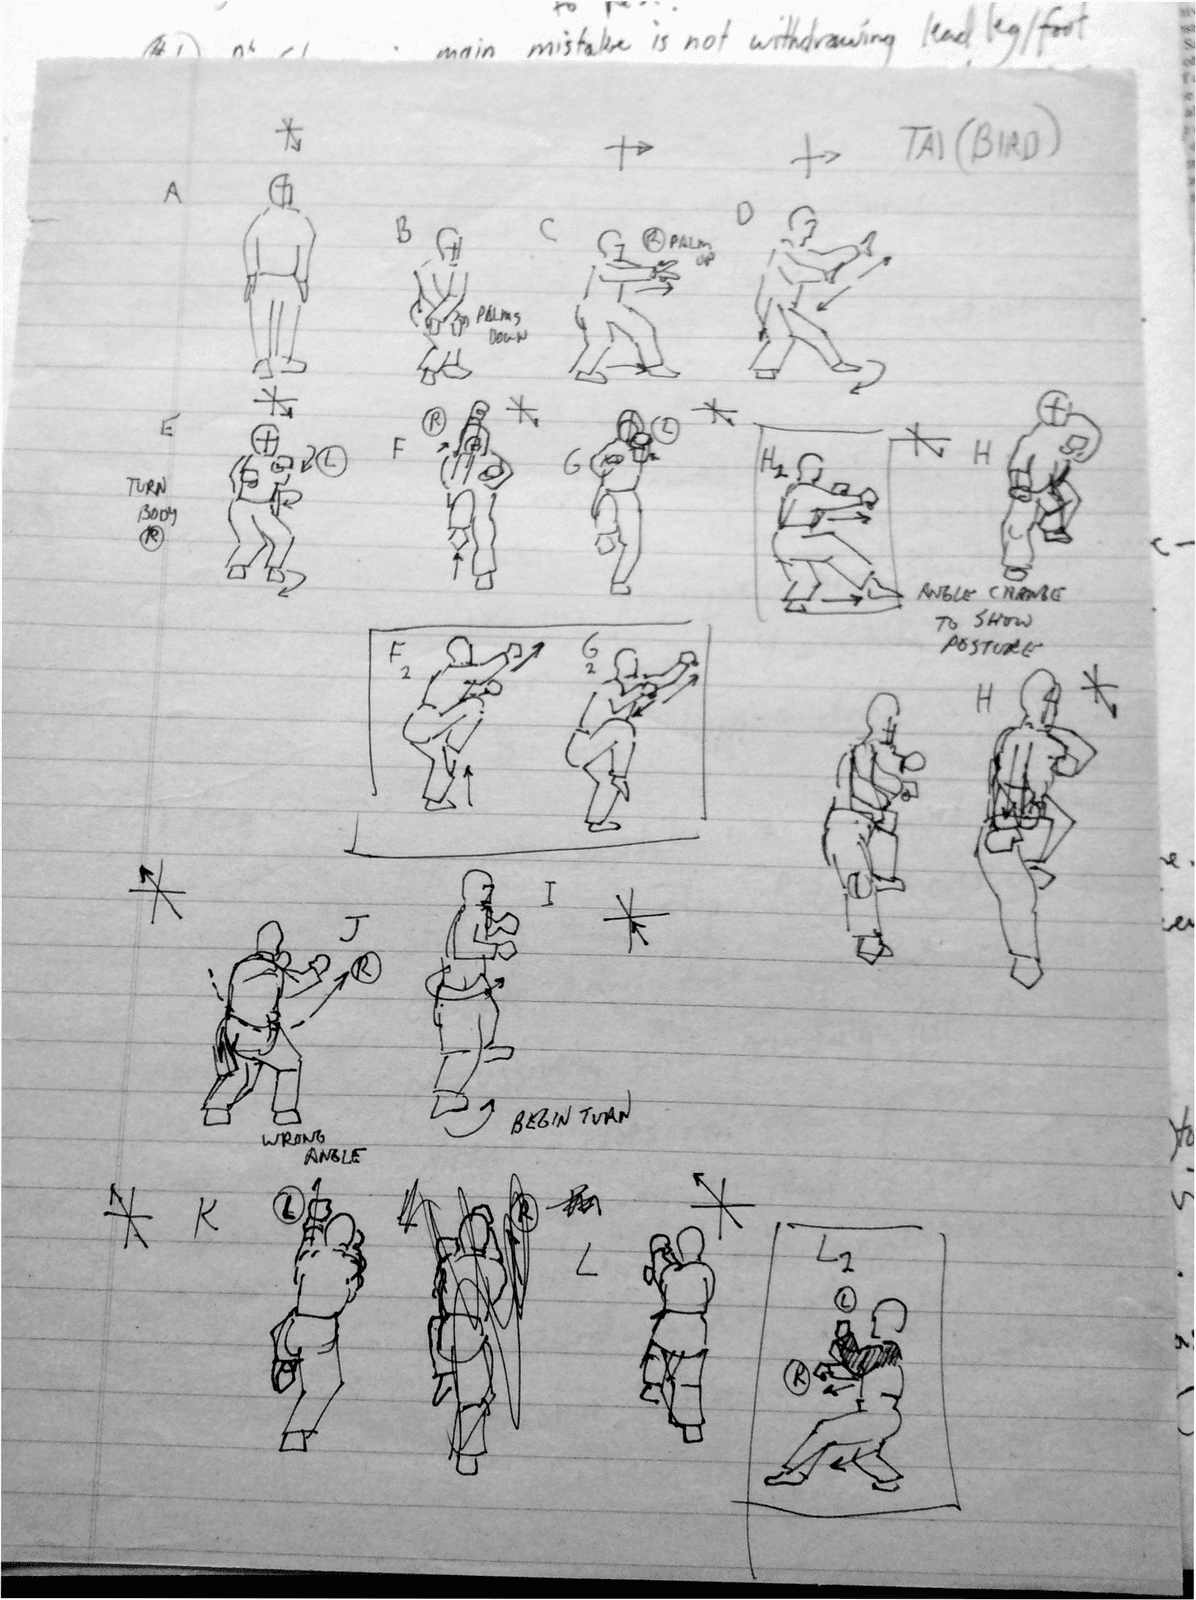 to
main mistake is not withdrawing lead leg/foot
TAI (BIRD)
A
B
PALMS
DOWN
C
R PALM
UP
D
E
L
TURN
BODY
R
F
R
G
L
H2
H
ANGLE CHANGE
TO SHOW
POSTURE
F2
G2
H
J
R
WRONG
ANGLE
I
BEGIN TURN
K
L
R
L
L2
L
R